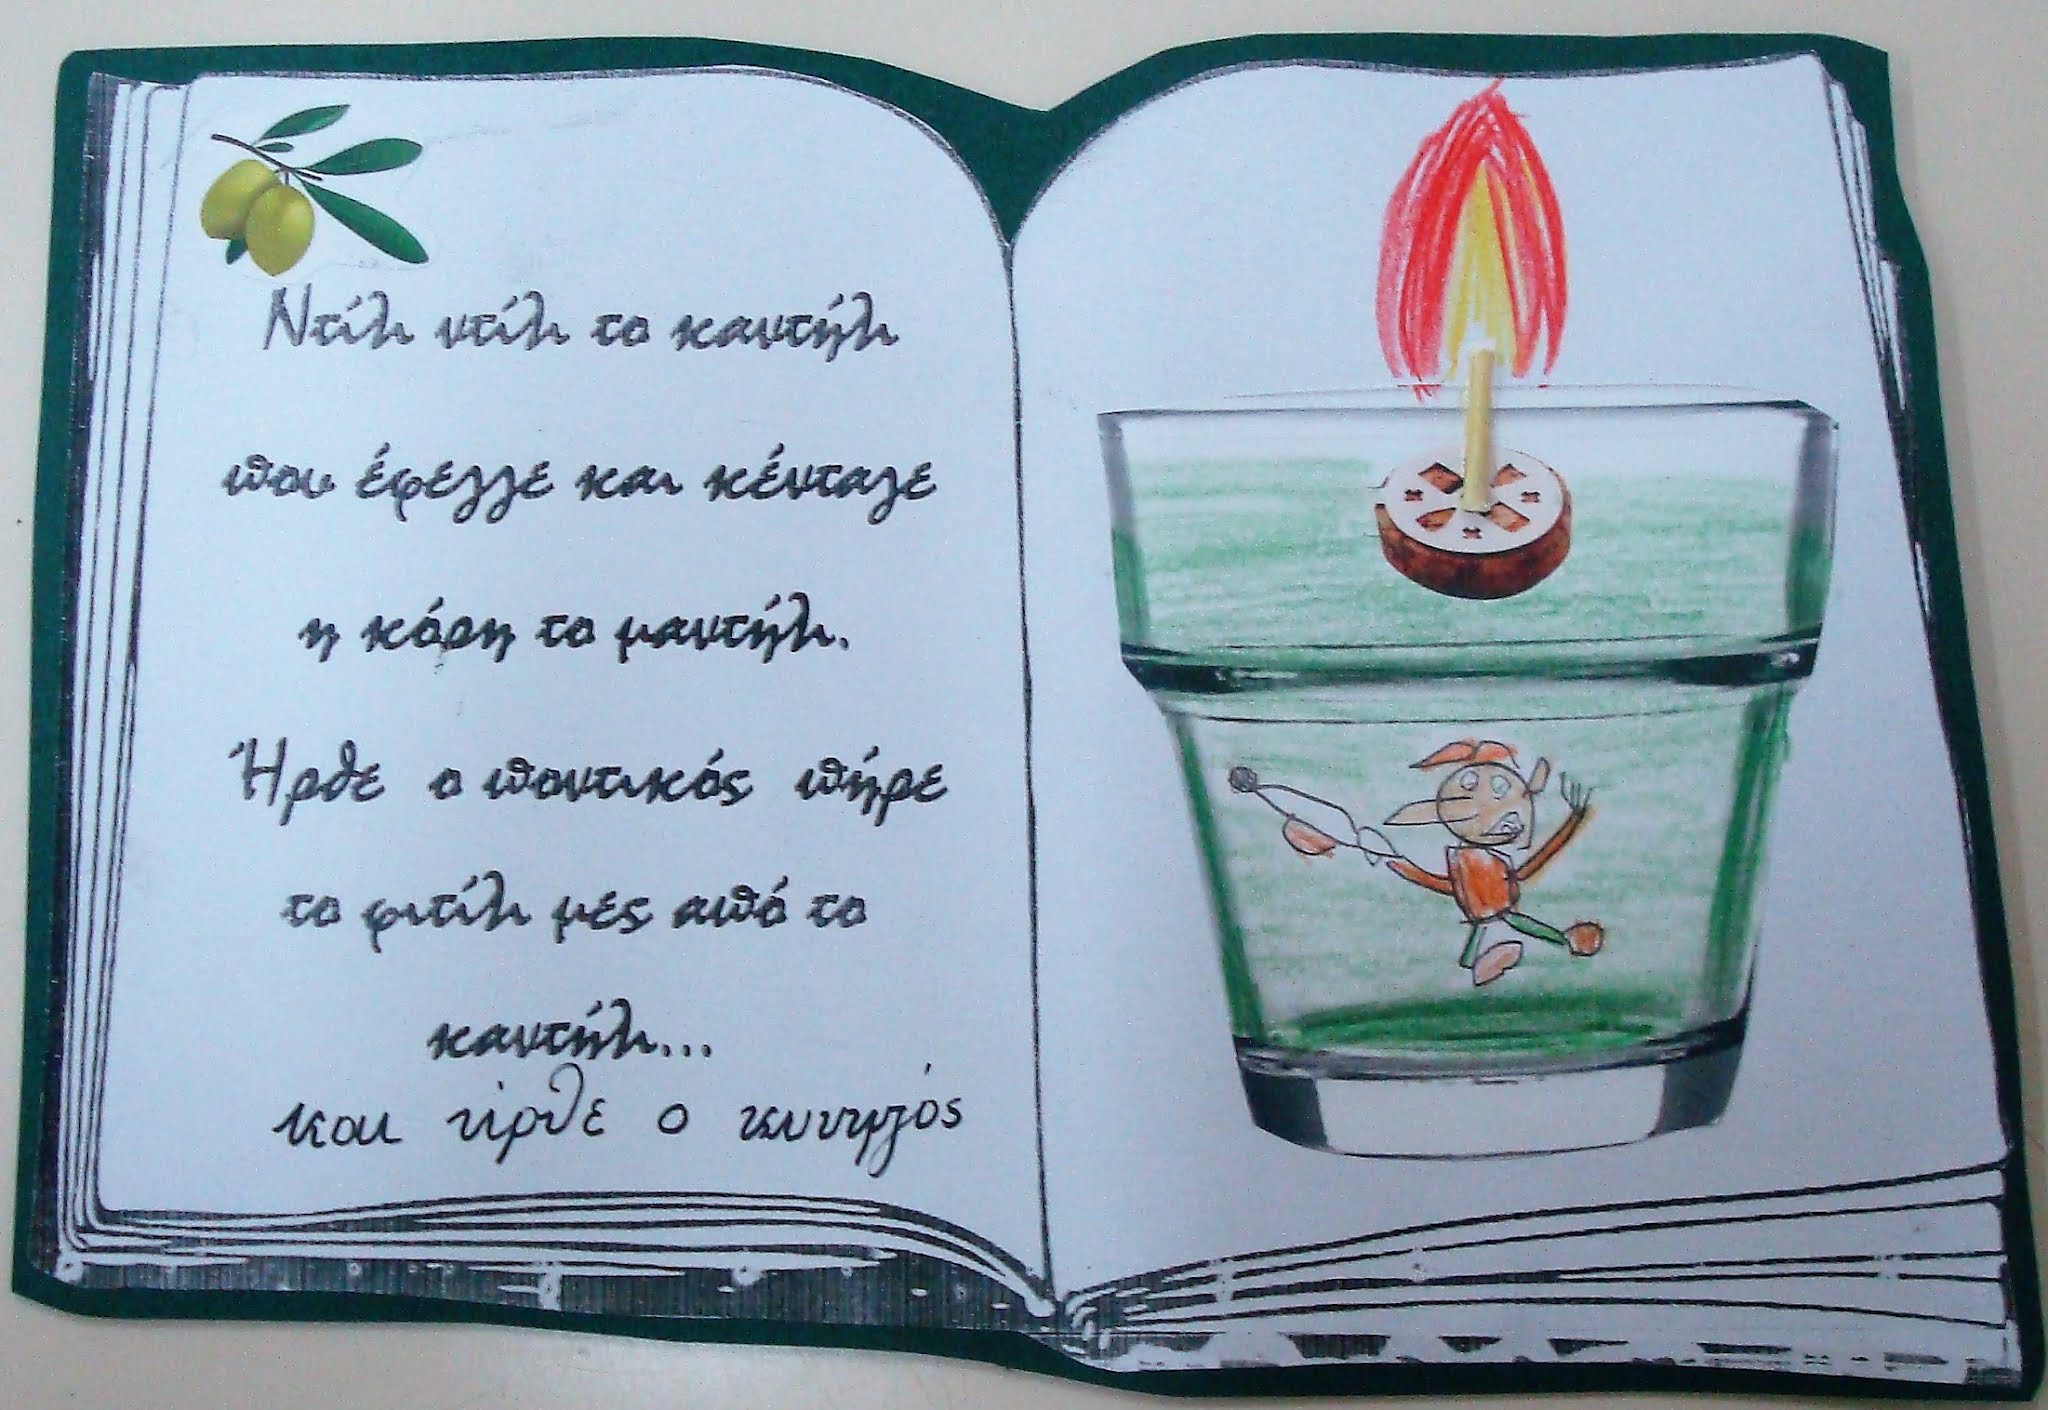 Ντίλι ντίλι το καντήλι
που έφεγγε και κένταγε
η κόρη το μαντήλι.
Ήρθε ο ποντικός πήρε
το φιτίλι μες από το
καντήλι...
και ήρθε ο κυνηγός